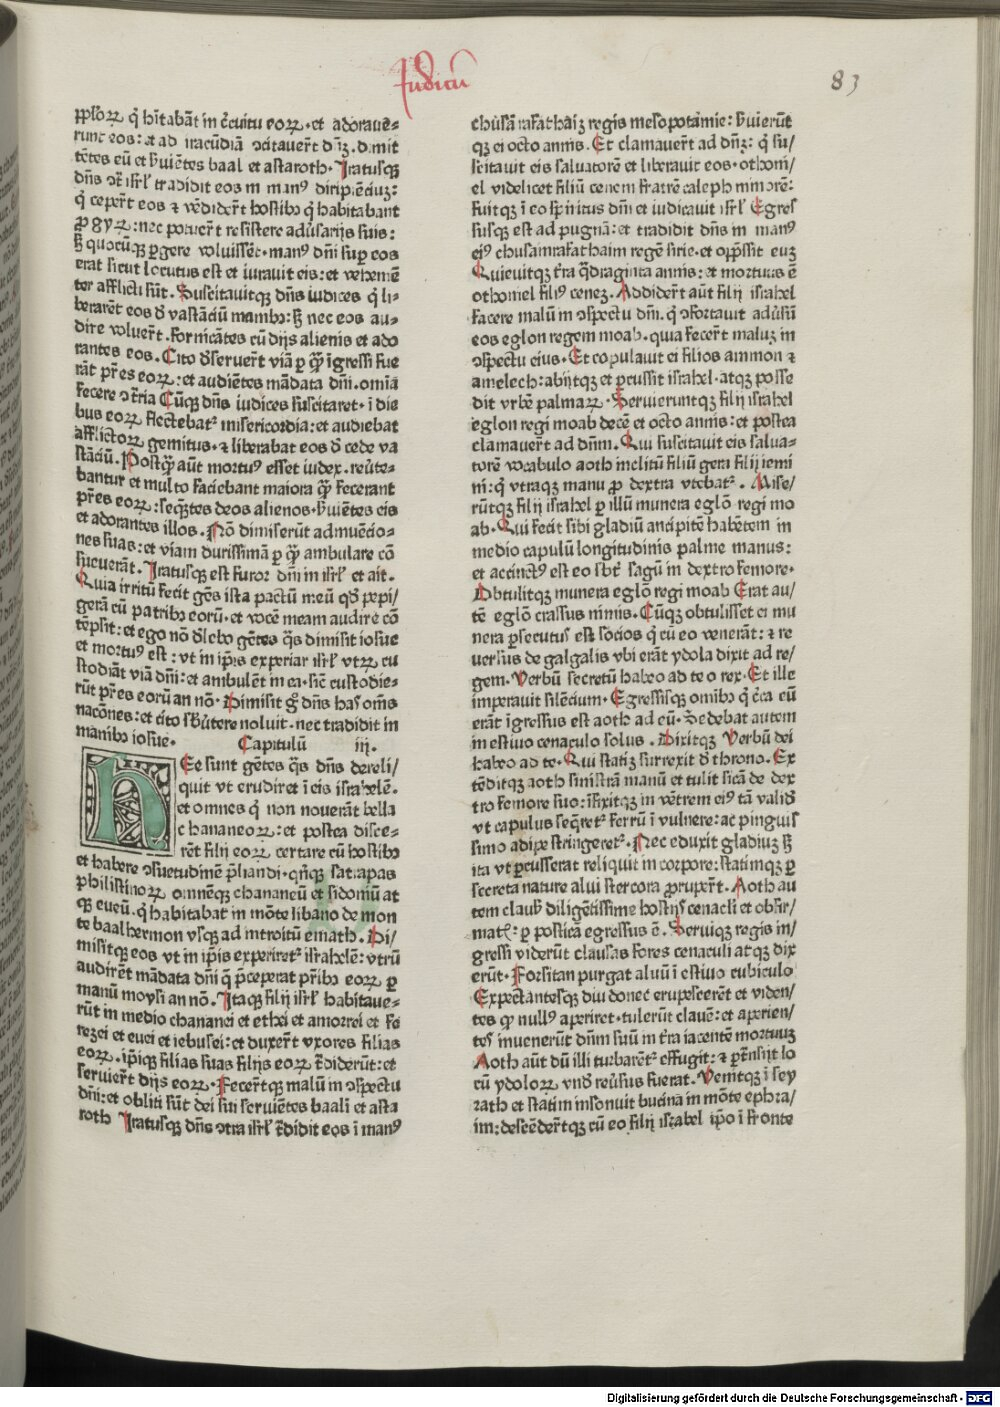 Iudicū
83
ppl'oꝝ q̇ hītabāt in c̄cuitu eoꝝ·et adoraue⸗
runt eos:et ad iracūdiā ↄcitauer̄t dn̄ʒ.dimit
tētes eū et ẜuiētes baal et astaroth·Iratusqꝫ
dn̄s ↄ̄t isrl̄ tradidit eos in man⁹ diripiētiuʒ:
q̇ ceper̄t eos ⁊ vēdider̄t hostibꝰ q̇ habitabant
ꝑ gyꝝ:nec potuer̄t resistere adūsarijs suis:
ꝫ quocūqꝫ ꝑgere voluissēt·man⁹ dn̄i suꝑ eos
erat sicut locutus est et iurauit eis:et vehemē
ter afflicti sūt. Suscitauitqꝫ dn̄s iudices q̇ li⸗
berarēt eos d̄ vastātiū manibꝰ:ꝫ nec eos au⸗
dire voluer̄t.Fornicātes cū dijs alienis et ado
rantes eos. Cito d̄seruer̄t viā ꝑ qꝫ̄ īgressi fue
rāt pr̄es eoꝝ:et audiētes mādata dn̄i.omīa
fecere ↄ̄tria Cūqꝫ dn̄s iudices suscitaret·ī die
bus eoꝝ flectebat᷑ misericordia:et audiebat
afflictoꝝ gemitus·⁊ liberabat eos d̄ cede va
stātiū. Postqꝫ̄ aūt mortu⁹ esset iudex.reūte⸗
bantur et multo faciebant maiora qꝫ̄ fecerant
pr̄es eoꝝ:seqn̄tes deos alienos·ẜuiētes eis
et adorantes illos. Nō dimiserūt adinuētio⸗
nes suas:et viam durissimā ꝑ qꝫ̄ ambulare cō
sueuerāt. Iratusqꝫ est furor dn̄i in isrl̄ et ait.
Quia irritū fecit gēs ista pactū meū qd̄ pepi/
gerā cū patribꝰ eorū·et vocē meam audire cō
tēpsit:et ego nō d̄lebo gētes q̄s dimisit iosue
et mortu⁹ est:vt in ip̄is experiar isrl̄ vtꝝ cu
stodiāt viā dn̄i:et ambulēt in ea·sic̄ custodie⸗
rūt pr̄es eorū an nō· Dimisit g̊ dn̄s has om̄s
nacōnes:et cito sb̄ūtere noluit.nec tradidit in
manibꝰ iosue· Capitulū iij.
HEe sunt gētes q̄s dn̄s dereli/
quit vt erudiret ī eis israhelē.
et omnes q̇ non nouerāt bella
chananeoꝝ:et postea disce⸗
rēt filij eoꝝ certare cū hostibꝰ
et habere ↄsuetudinē p̄liandi·qn̄qꝫ satrapas
philistinoꝝ omnēqꝫ chananeū et sidoniū at
qꝫ eueū.q̇ habitabat in mōte libano de mon
te baalhermon vsqꝫ ad introitū emath. Di/
misitqꝫ eos vt in ip̄is experiret᷑ israhelē:vtrū
audirēt mādata dn̄i q̄ p̄ceperat pr̄ibꝰ eoꝝ ꝑ
manū moysi an nō. Itaqꝫ filij isrl̄ habitaue⸗
rūt in medio chananei et ethei et amorrei et fe
rezei et euei et iebusei:et duxer̄t vxores filias
eoꝝ.ip̄iqꝫ filias suas filijs eoꝝ t̄diderūt:et
seruier̄t dijs eoꝝ·Fecer̄tqꝫ malū in ↄspectu
dn̄i:et obliti sūt dei sui seruiētes baali et asta
roth Iratusqꝫ dn̄s ↄtra isrl̄ t̄didit eos ī man⁹
chusā rasathaiʒ regis mesopotāmie:ẜuierūt
qꝫ ei octo annis. Et clamauer̄t ad dn̄ʒ:q̇ su/
scitauit eis saluatorē et liberauit eos·othoni/
el videlicet filiū cenem fratrē caleph minorē:
fuitqꝫ ī eo spn̄itus dn̄i et iudicauit isrl̄ Egres
susqꝫ est ad pugnā:et tradidit dn̄s in man⁹
ei⁹ chusamrasathaim regē sirie·et opp̄ssit euʒ
Quieuitqꝫ t̄ra q̄draginta annis:et mortuus ē
othoniel fili⁹ ceneʒ. Addider̄t aūt filij israhel
facere malū in ↄspectu dn̄i.q̇ ↄfortauit adūsū
eos eglon regem moab.quia fecer̄t maluʒ in
ↄspectu eius·Et copulauit ei filios ammon ⁊
amelech:abijtqꝫ et ꝑcussit israhel·atqꝫ posse
dit vrbē palmaꝝ·Seruieruntqꝫ filij israhel
eglon regi moab decē et octo annis:et postea
clamauer̄t ad dn̄m. Qui suscitauit eis salua⸗
torē vocabulo aoth inclitū filiū gera filij iemi
ni:q̇ vtraqꝫ manu ꝓ dextra vtebat᷑. Mise/
rūtqꝫ filij israhel ꝑ illū munera eglō regi mo
ab·Qui fecit sibi gladiū ancipitē habētem in
medio capulū longitudinis palme manus:
et accinct⁹ est eo sbt̄ sagū in dextro femore·
Obtulitqꝫ munera eglō regi moab Erat au/
tē eglō crassus nimis. Cūqꝫ obtulisset ei mu
nera ꝑsecutus est socios q̇ cū eo venerāt:⁊ re
uersus de galgalis vbi erāt ydola dixit ad re/
gem. Verbū secretū habeo ad te o rex·Et ille
imperauit silētium·Egressisqꝫ omibꝰ q̇ c̄ca eū
erāt īgressus est aoth ad eū·Sedebat autem
in estiuo cenaculo solus. Dixitqꝫ Verbū dei
habeo ad te·Qui statiʒ surrexit d̄ throno. Ex
tēditqꝫ aoth sinistrā manū et tulit sicā de dex
tro femore suo:īfixitqꝫ in vētrem ei⁹ tā valid̄
vt capulus seq̄ret᷑ ferrū ī vulnere:ac pinguis
simo adipe stringeret᷑. Nec eduxit gladiuʒ ꝫ
ita vt ꝑcusserat reliquit in corpore:statimqꝫ ꝑ
secreta nature alui stercora ꝓruper̄t. Aoth au
tem clausꝭ diligētissime hostijs cenacli et obfir/
mat?:ꝑ posticā egressus ē. Seruiqꝫ regis in/
gressi viderūt clausas fores cenaculi atqꝫ dix
erūt·Forsitan purgat aluū ī estiuo cubiculo
Expectantesqꝫ diu donec erupescerēt et viden/
tes qꝫ null⁹ aperiret·tulerūt clauē:et aperien/
tes inuenerūt dn̄m suū in t̄ra iacentē mortuuʒ
Aoth aūt dū illi turbarēt᷑ effugit:⁊ ꝑtrāsijt lo
cū ydoloꝝ vnd̄ reūsus fuerat. Venitqꝫ ī sey
rath et statim insonuit bucina in mōte ephra/
im:descēder̄tqꝫ cū eo filij israhel ip̄o ī fronte
Digitalisierung gefördert durch die Deutsche Forschungsgemeinschaft - DFG